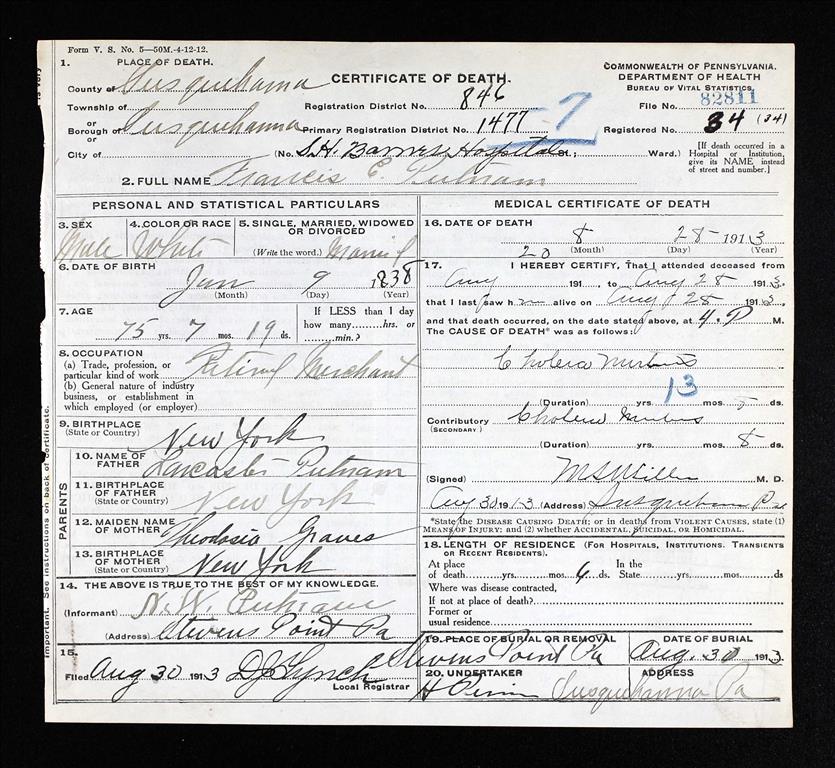 Form V. S. No. 5—50M.-4-12-12.
1. PLACE OF DEATH.
CERTIFICATE OF DEATH.
COMMONWEALTH OF PENNSYLVANIA.
DEPARTMENT OF HEALTH
BUREAU OF VITAL STATISTICS.
County of Susquehanna
Township of
or
Borough of Susquehanna
City of
Registration District No. 846
Primary Registration District No. 1477 - 7
File No. 82811
Registered No. 34 (34)
(No. S.H. Barnes Hospital St.; Ward.)
[If death occurred in a Hospital or Institution, give its NAME instead of street and number.]
2. FULL NAME Francis E. Putnam
PERSONAL AND STATISTICAL PARTICULARS
3. SEX
Male
4. COLOR OR RACE
White
5. SINGLE, MARRIED, WIDOWED OR DIVORCED
(Write the word.) Married
6. DATE OF BIRTH
Jan 9 1838
(Month) (Day) (Year)
7. AGE
75 yrs. 7 mos. 19 ds.
If LESS than 1 day how many........hrs. or ........min.?
8. OCCUPATION
(a) Trade, profession, or particular kind of work
Retired Merchant
(b) General nature of industry business, or establishment in which employed (or employer)
9. BIRTHPLACE
(State or Country)
New York
PARENTS
10. NAME OF FATHER
Lancaster Putnam
11. BIRTHPLACE OF FATHER
(State or Country)
New York
12. MAIDEN NAME OF MOTHER
Theodosia Graves
13. BIRTHPLACE OF MOTHER
(State or Country)
New York
14. THE ABOVE IS TRUE TO THE BEST OF MY KNOWLEDGE.
(Informant) N. W. Putnam
(Address) Stevens Point Pa
15.
Filed Aug 30 1913 D J Lynch
Local Registrar
MEDICAL CERTIFICATE OF DEATH
16. DATE OF DEATH
8 28 1913
(Month) (Day) (Year)
17. I HEREBY CERTIFY, That I attended deceased from
Aug 191 , to Aug 28 1913.
that I last saw h m alive on Aug 28 1913.
and that death occurred, on the date stated above, at 4 P M.
The CAUSE OF DEATH* was as follows:
Cholera Morbus
13
(Duration) yrs. mos. ds.
Contributory
(SECONDARY)
Cholera Morbus
(Duration) yrs. mos. 8 ds.
(Signed) M. D.
Aug 30 1913 (Address) Susquehanna Pa
*State the DISEASE CAUSING DEATH; or in deaths from VIOLENT CAUSES, state (1) MEANS OF INJURY; and (2) whether ACCIDENTAL, SUICIDAL, OR HOMICIDAL.
18. LENGTH OF RESIDENCE (FOR HOSPITALS, INSTITUTIONS. TRANSIENTS OR RECENT RESIDENTS).
At place of death......yrs......mos. ds. In the State......yrs......mos......ds
Where was disease contracted,
If not at place of death?
Former or usual residence
19. PLACE OF BURIAL OR REMOVAL
Stevens Point Pa
DATE OF BURIAL
Aug. 30 1913
20. UNDERTAKER
ADDRESS
Susquehanna Pa
Important. See instructions on back of certificate.